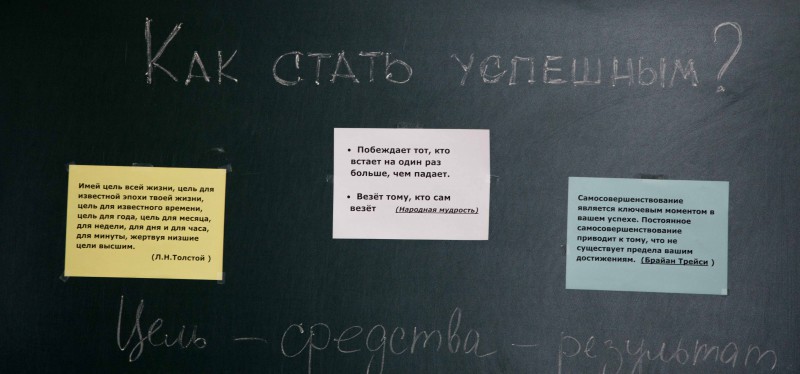 Как стать успешным?
Имей цель всей жизни, цель для
известной эпохи твоей жизни,
цель для известного времени,
цель для года, цель для месяца,
для недели, для дня и для часа,
для минуты, жертвуя низшие
цели высшим.
(Л.Н.Толстой )
• Побеждает тот, кто
встает на один раз
больше, чем падает.
• Везёт тому, кто сам
везёт (Народная мудрость)
Самосовершенствование
является ключевым моментом в
вашем успехе. Постоянное
самосовершенствование
приводит к тому, что не
существует предела вашим
достижениям. (Брайан Трейси )
Цель – средства – результат